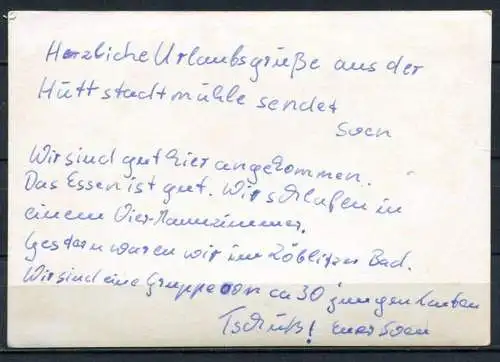 Herzliche Urlaubsgrüße aus der
Hüttstadtmühle sendet
Soen
Wir sind gut hier angekommen.
Das Essen ist gut. Wir schlafen in
einem Vier-Mannzimmer.
Gestern waren wir im Zöblitzer Bad.
Wir sind eine Gruppe von ca 30 jungen Leuten
Tschüß! Euer Soen